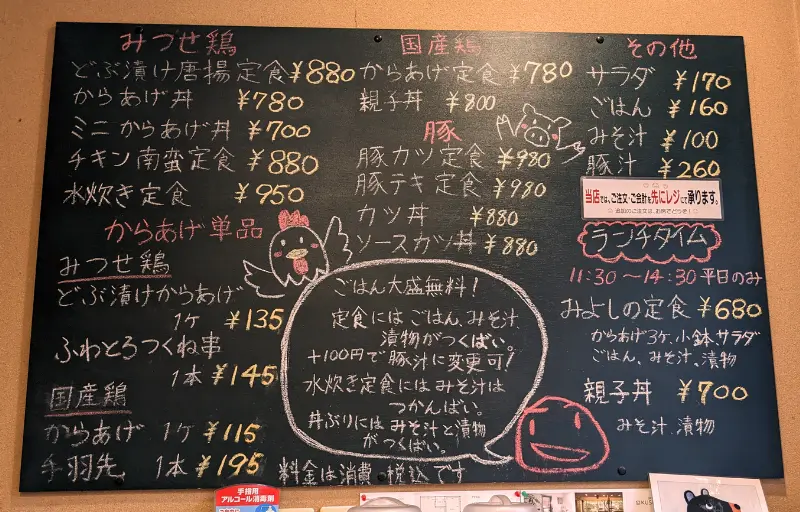 みつせ鶏
どぶ漬け唐揚定食 ¥880
からあげ丼 ¥780
ミニからあげ丼 ¥700
チキン南蛮定食 ¥880
水炊き定食 ¥950
からあげ単品
みつせ鶏
どぶ漬けからあげ
1ケ ¥135
ふわとろつくね串
1本 ¥145
国産鶏
からあげ 1ケ ¥115
手羽先 1本 ¥195
国産鶏
からあげ定食 ¥780
親子丼 ¥800
豚
豚カツ定食 ¥980
豚テキ定食 ¥980
カツ丼 ¥880
ソースカツ丼 ¥880
ごはん大盛無料!
定食にはごはん、みそ汁、
漬物がつくばい。
+100円で豚汁に変更可!
水炊き定食にはみそ汁は
つかんばい。
丼ぶりにはみそ汁と漬物
がつくばい。
料金は消費税込です
その他
サラダ ¥170
ごはん ¥160
みそ汁 ¥100
豚汁 ¥260
当店では、ご注文・ご会計を先にレジにて承ります。
ランチタイム
11:30〜14:30 平日のみ
みよしの定食 ¥680
からあげ3ケ、小鉢、サラダ
ごはん、みそ汁、漬物
親子丼 ¥700
みそ汁、漬物
手指用
アルコール消毒剤